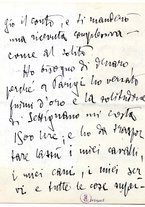 gio il conto, e ti manderò
una ricevuta complessiva
come al solito
Ho bisogno di denaro,
perché a Parigi ho versato
fiumi d'oro e la solitudine
di Settignano mi costa
1500 lire, e ho da traspor
tare lassù i miei cavalli,
i miei cani, i miei ser
vi e tutte le cose